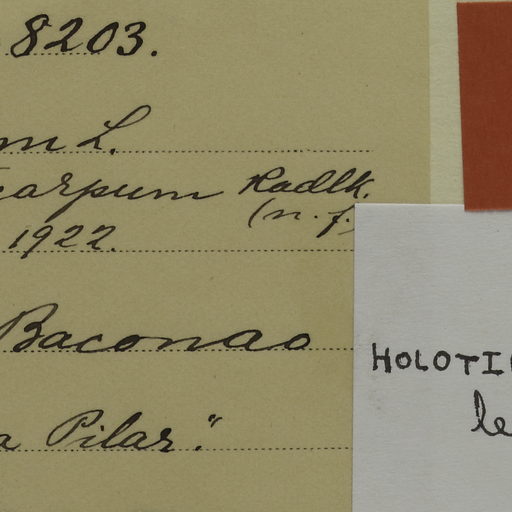 8203.
m L.
carpum Radlk.
(n. f.)
1922.
Baconao
HOLOTI
a Pilar."
le